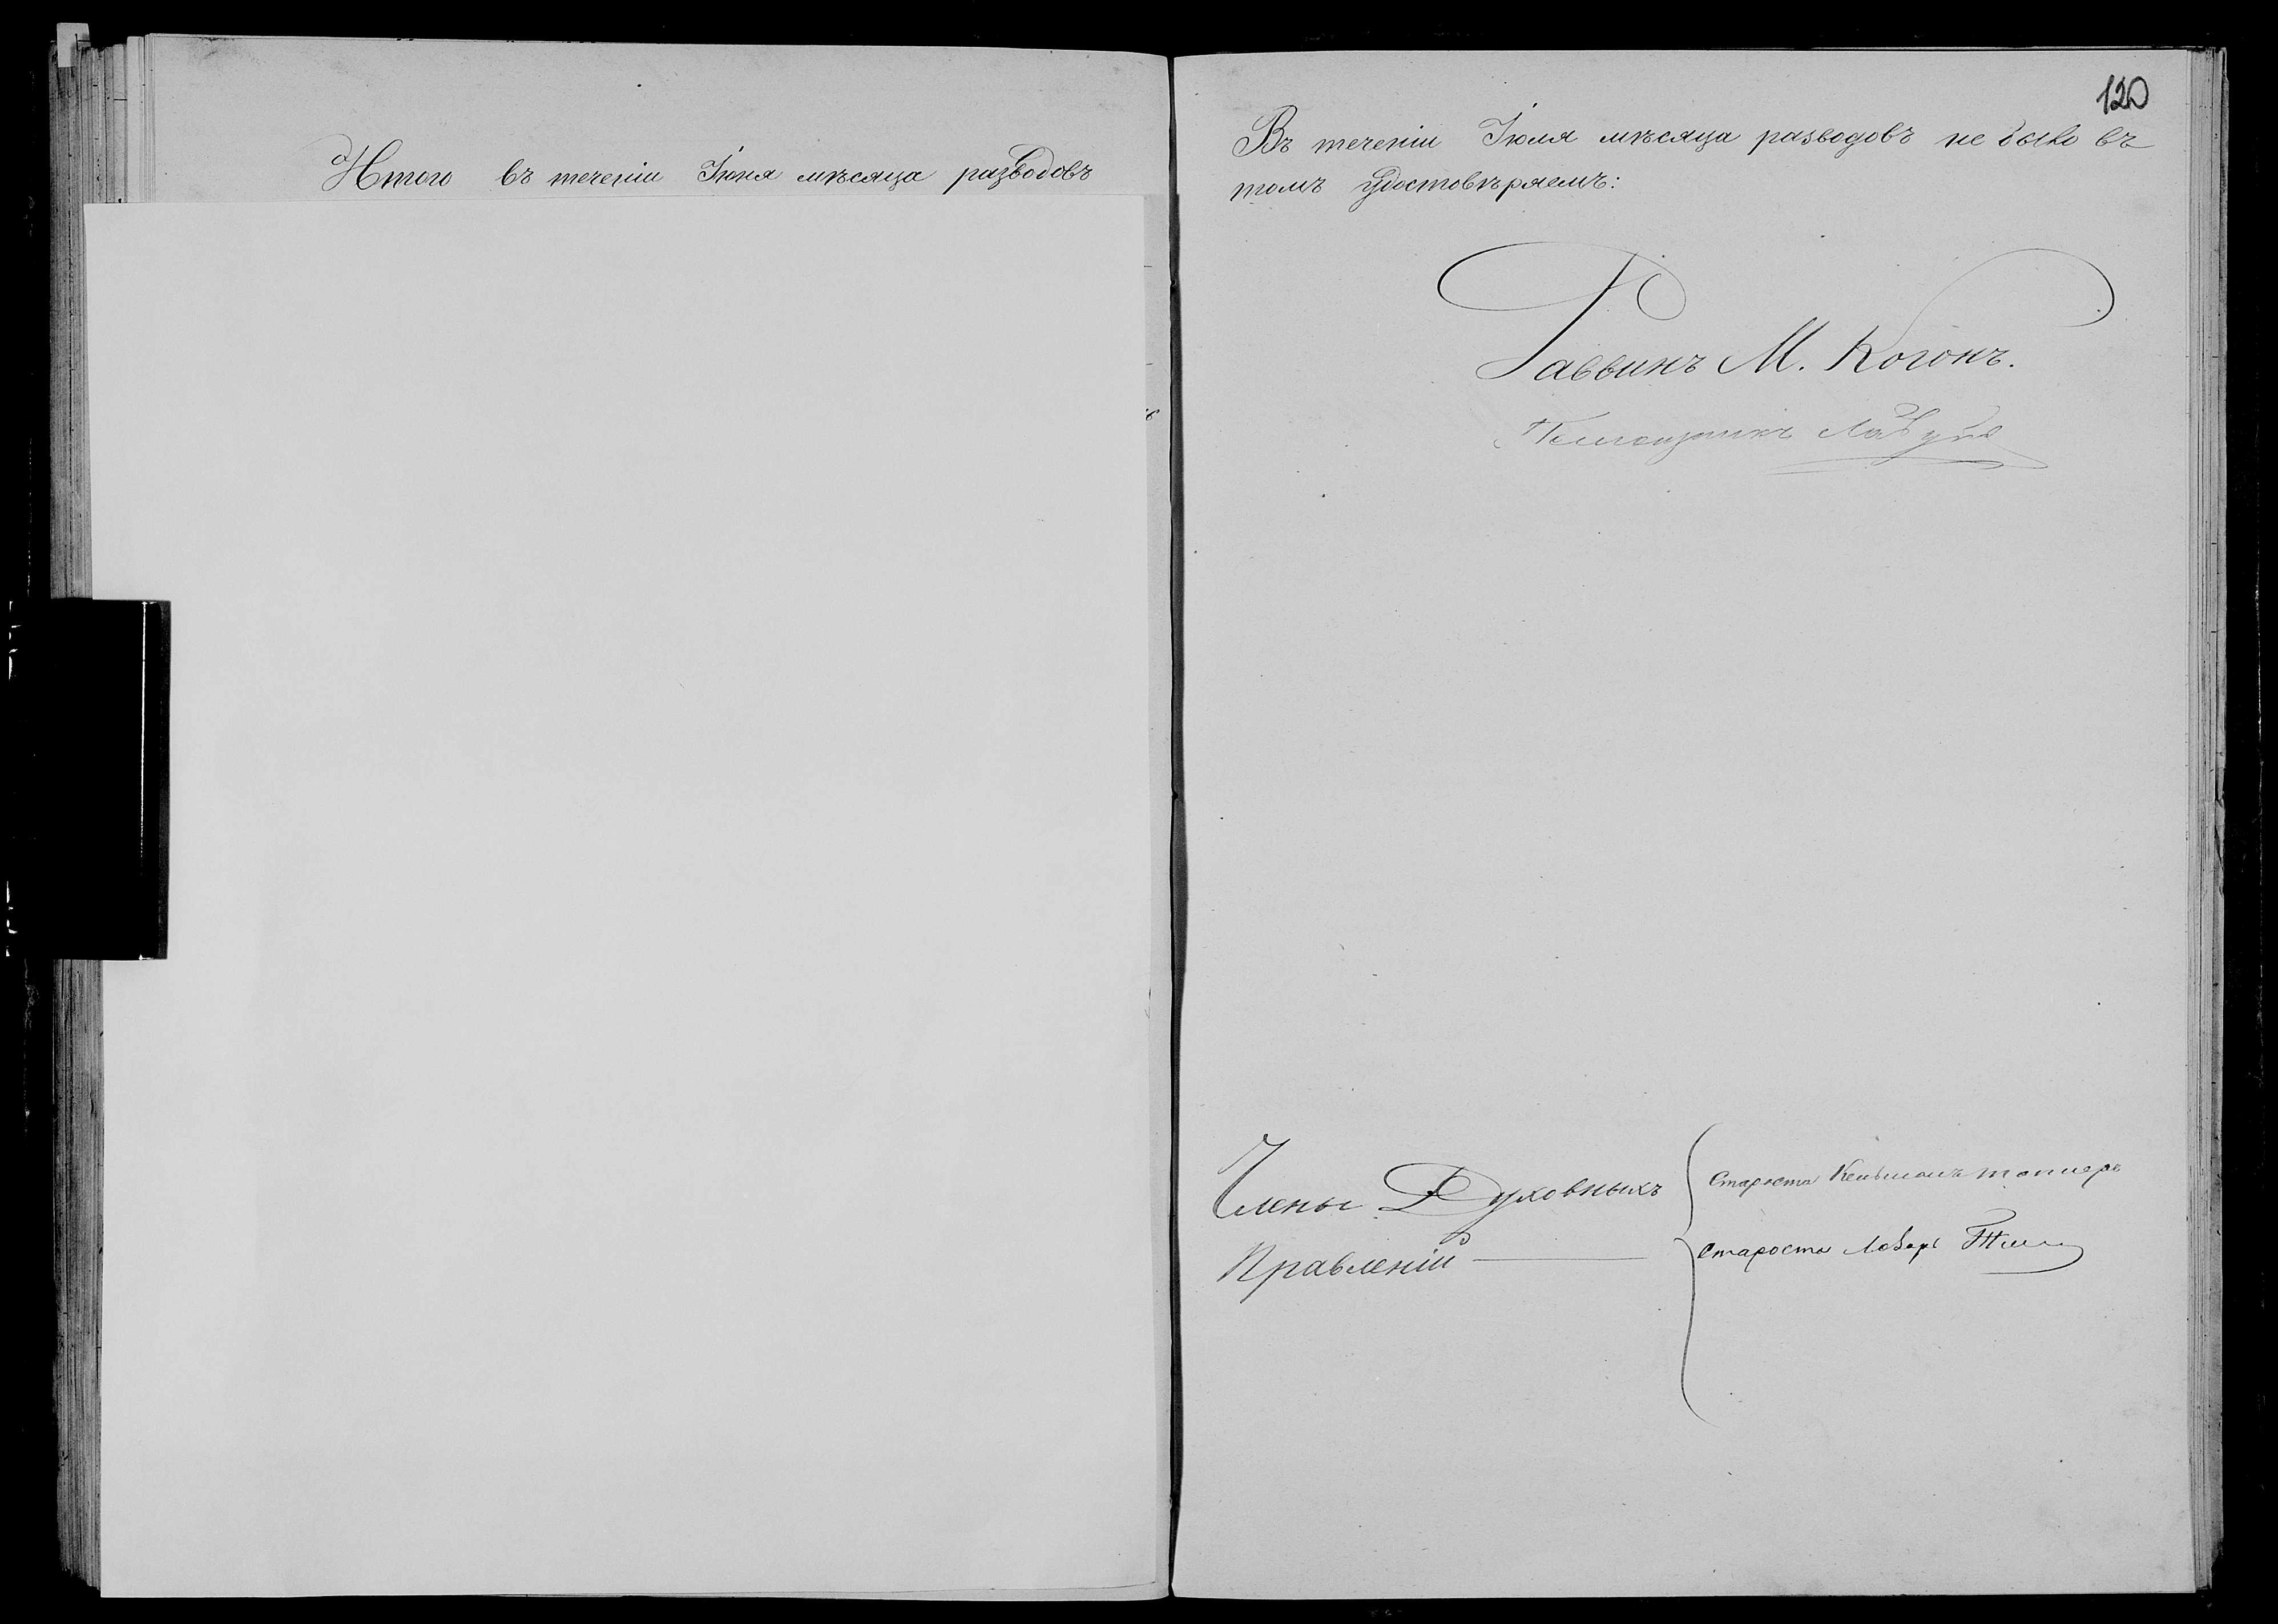 Итого въ теченіи Іюня мѣсяца разводовъ
120
Въ теченіи Іюля мѣсяца разводовъ не было въ
томъ удостовѣряемъ:
Раввинъ М. Когонъ.
Члены Духовныхъ
Правленій
Староста
Староста